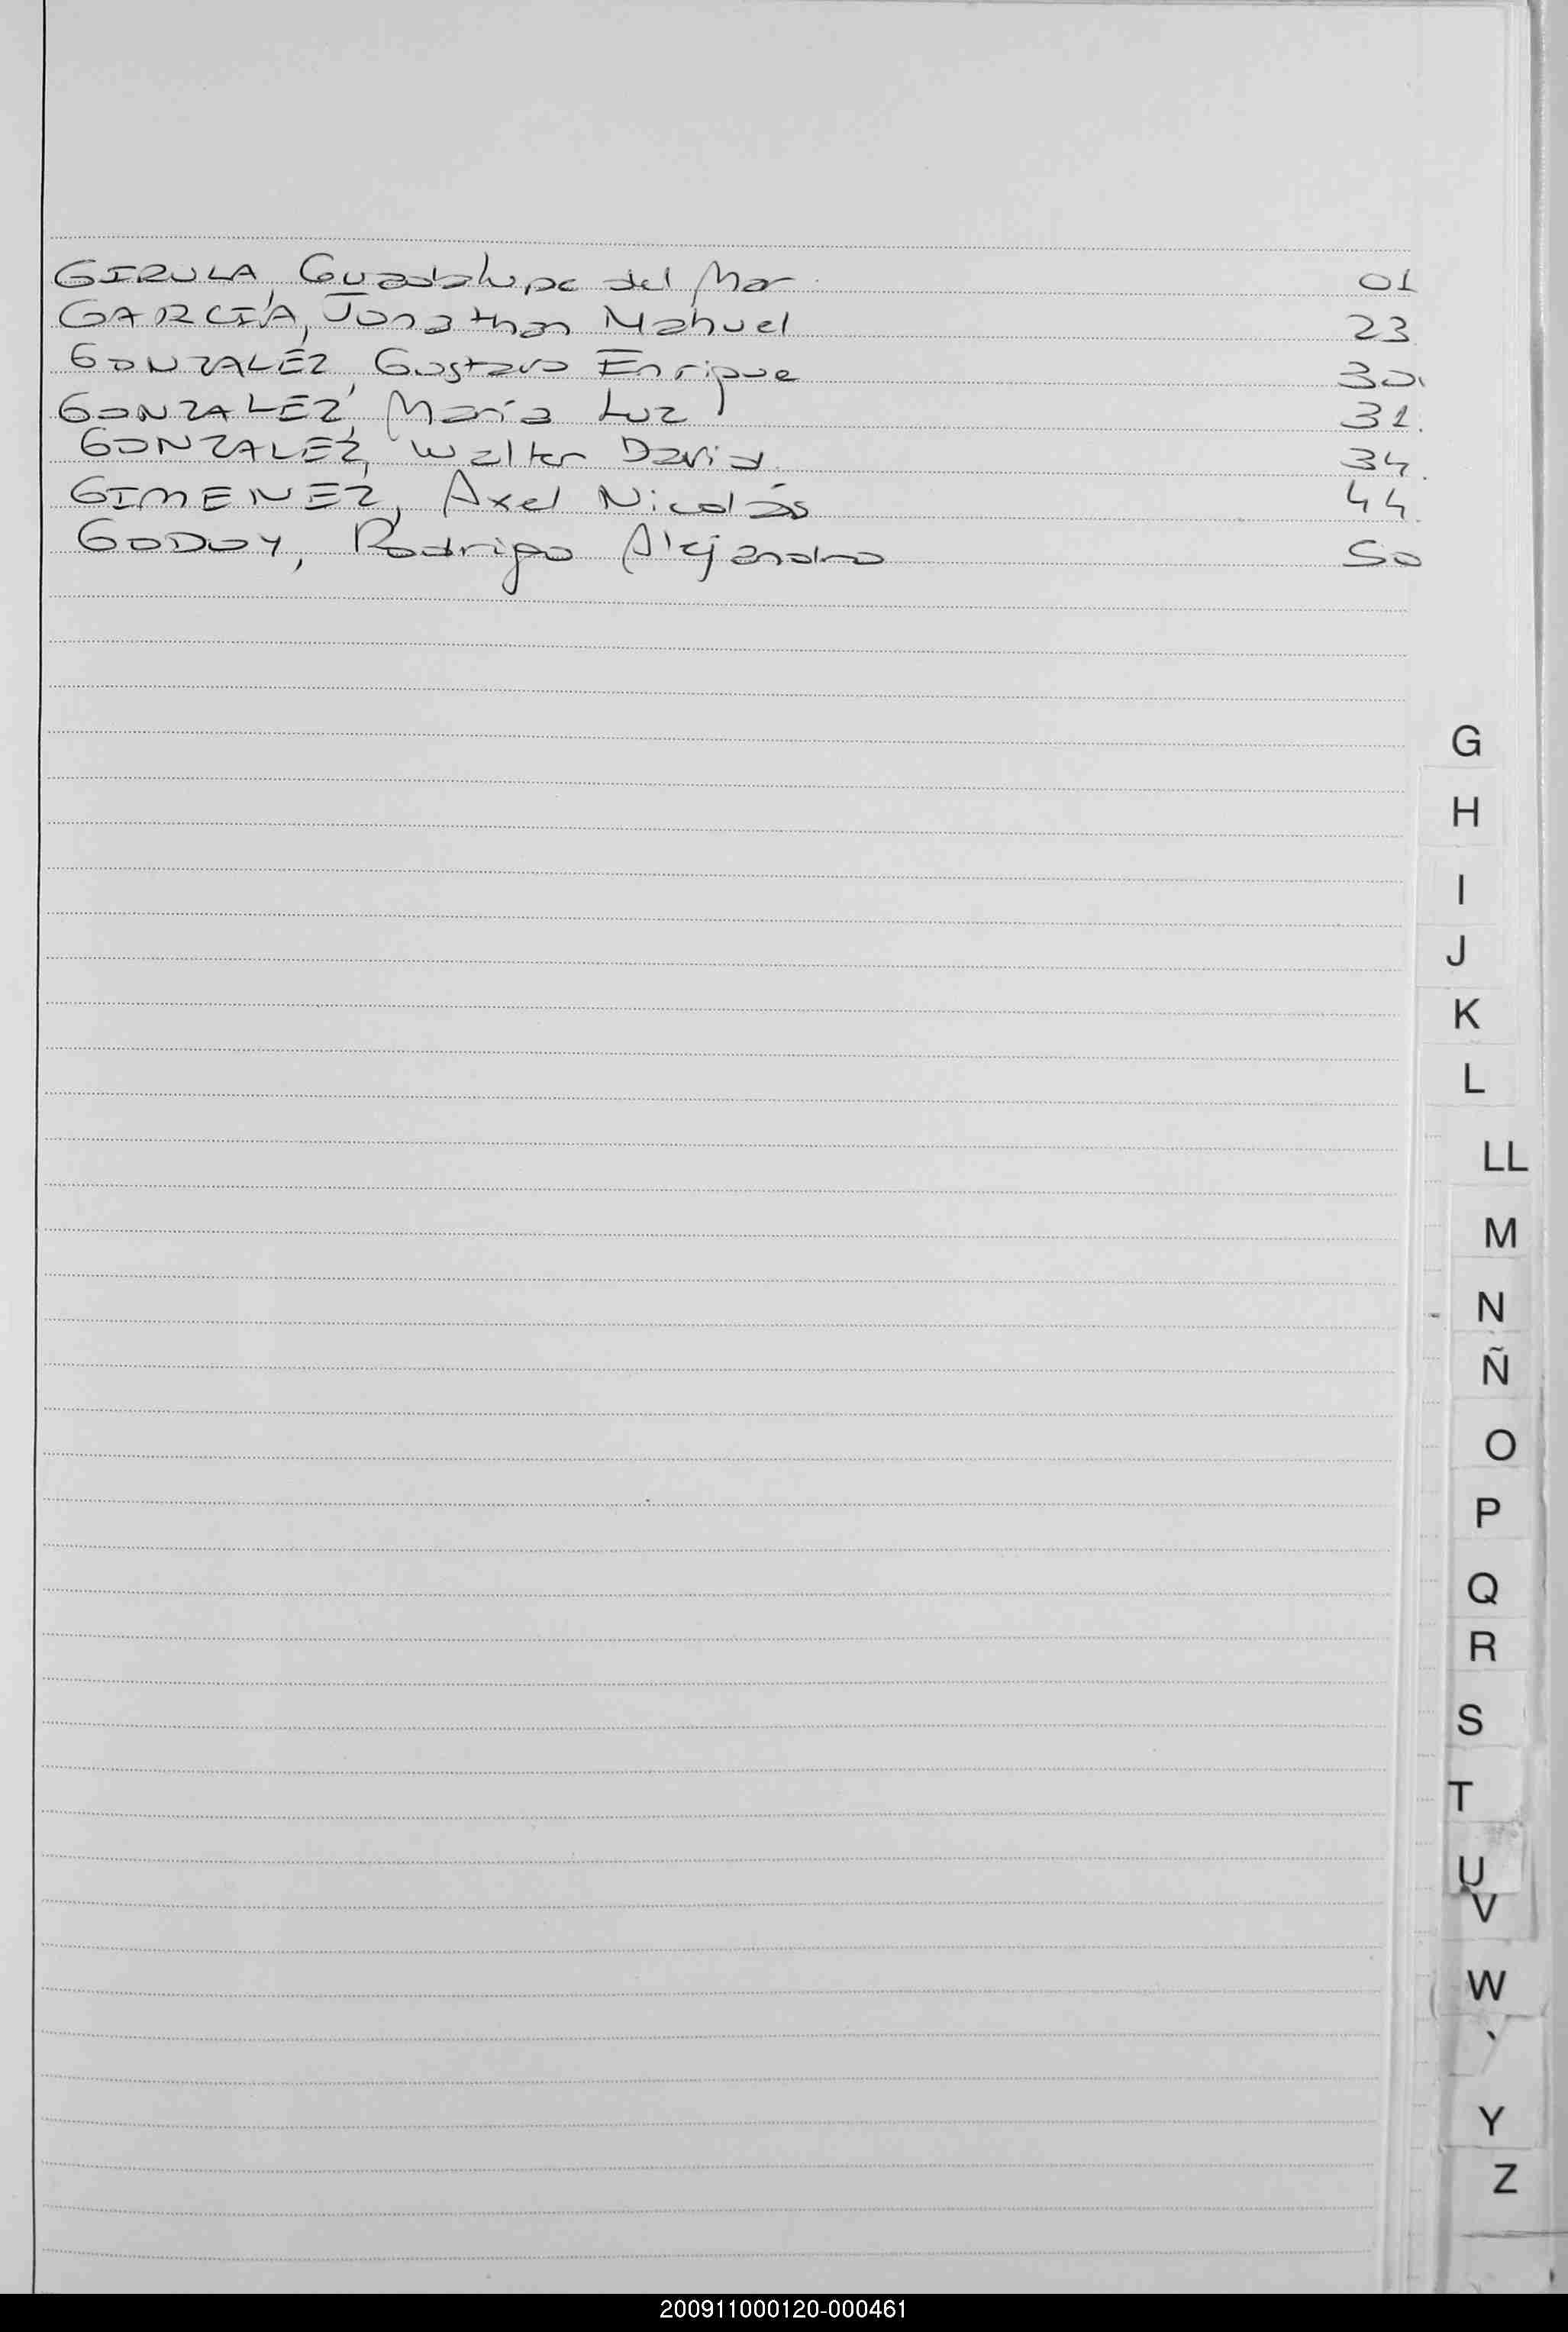 GIRULA, Guadalupe del Mar 01
GARCÍA, Jonathan Nahuel 23
GONZALEZ, Gustavo Enrique 30
GONZALEZ, María Luz 31
GONZALEZ, Walter David 34
GIMENEZ, Axel Nicolás 44
GODOY, Rodrigo Alejandro 50
G
H
I
J
K
L
LL
M
N
Ñ
O
P
Q
R
S
T
U
V
W
Y
Z
200911000120-000461